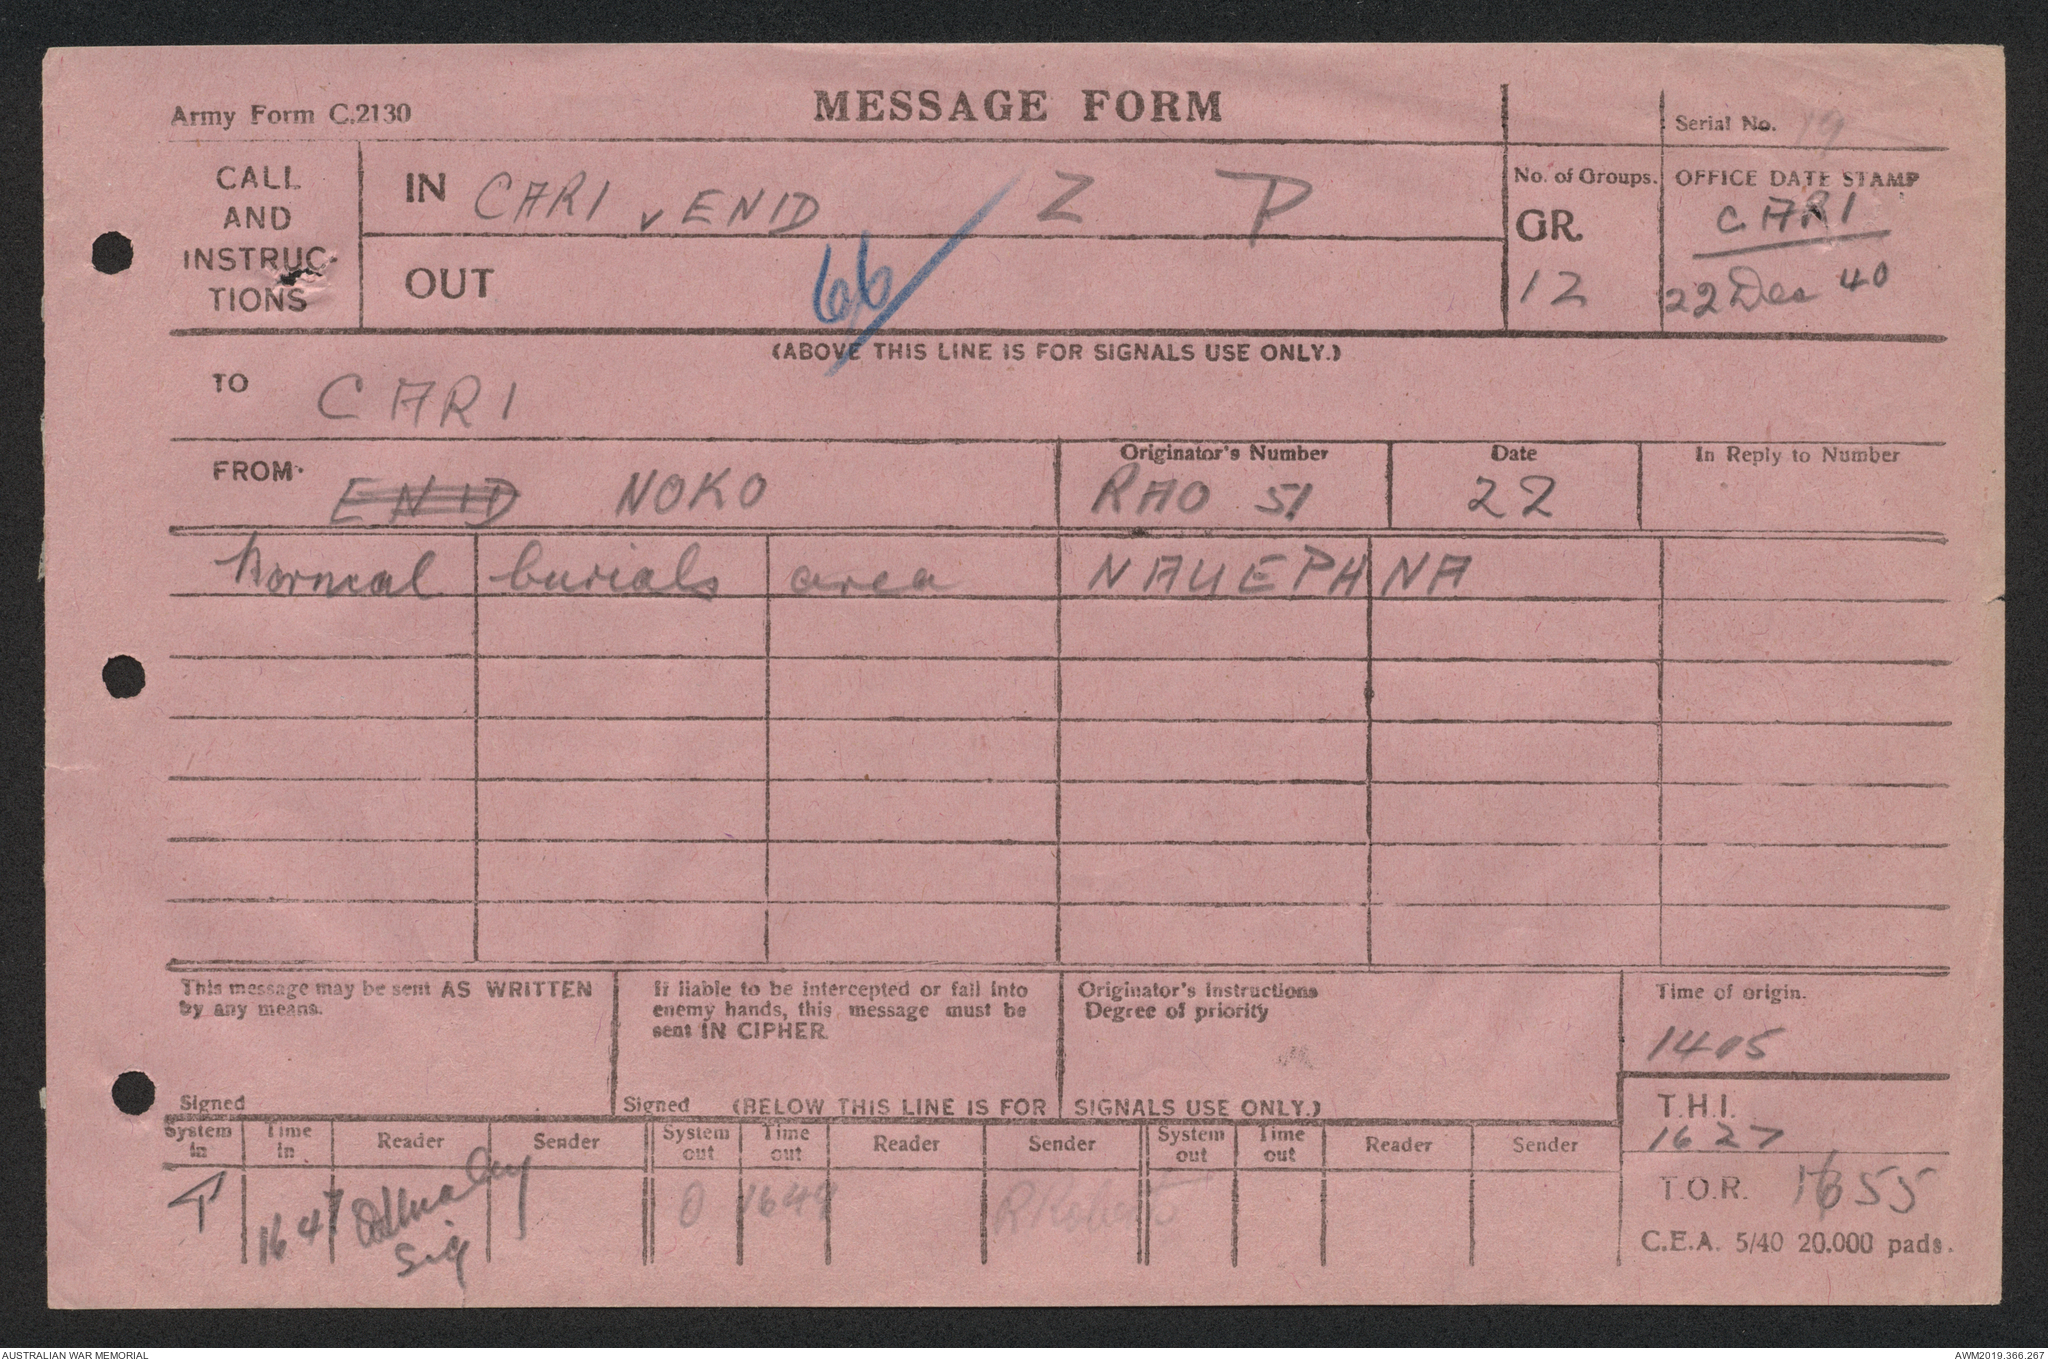 Army Form C.2130
MESSAGE FORM
Serial No. 19
CALL
AND
INSTRUC-
TIONS
IN CARI v ENID Z P
OUT 66
No. of Groups.
GR.
12
OFFICE DATE STAMP
CARI
22 Dec 40
(ABOVE THIS LINE IS FOR SIGNALS USE ONLY.)
TO CARI
FROM ENID NOKO
Originator's Number
RAO 51
Date
22
In Reply to Number
Normal burials area NAUEPH NA
This message may be sent AS WRITTEN
by any means.
Signed
If liable to be intercepted or fall into
enemy hands, this message must be
sent IN CIPHER
Signed
Originator's Instructions
Degree of priority
(BELOW THIS LINE IS FOR SIGNALS USE ONLY.)
Time of origin.
1405
T.H.I.
1627
T.O.R. 1655
System in Time in Reader Sender System out Time out Reader Sender System out Time out Reader Sender
T 1647 Sig 0 1649
C.E.A. 5/40 20.000 pads.
AUSTRALIAN WAR MEMORIAL
AWM2019.366.267